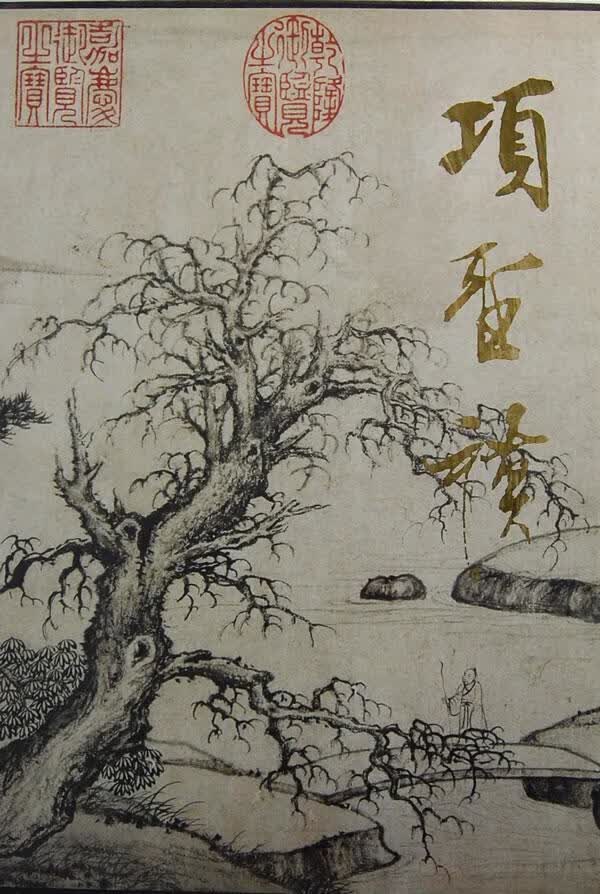 項聖謨
乾隆
御覽
之寶
嘉慶
御覽
之寶